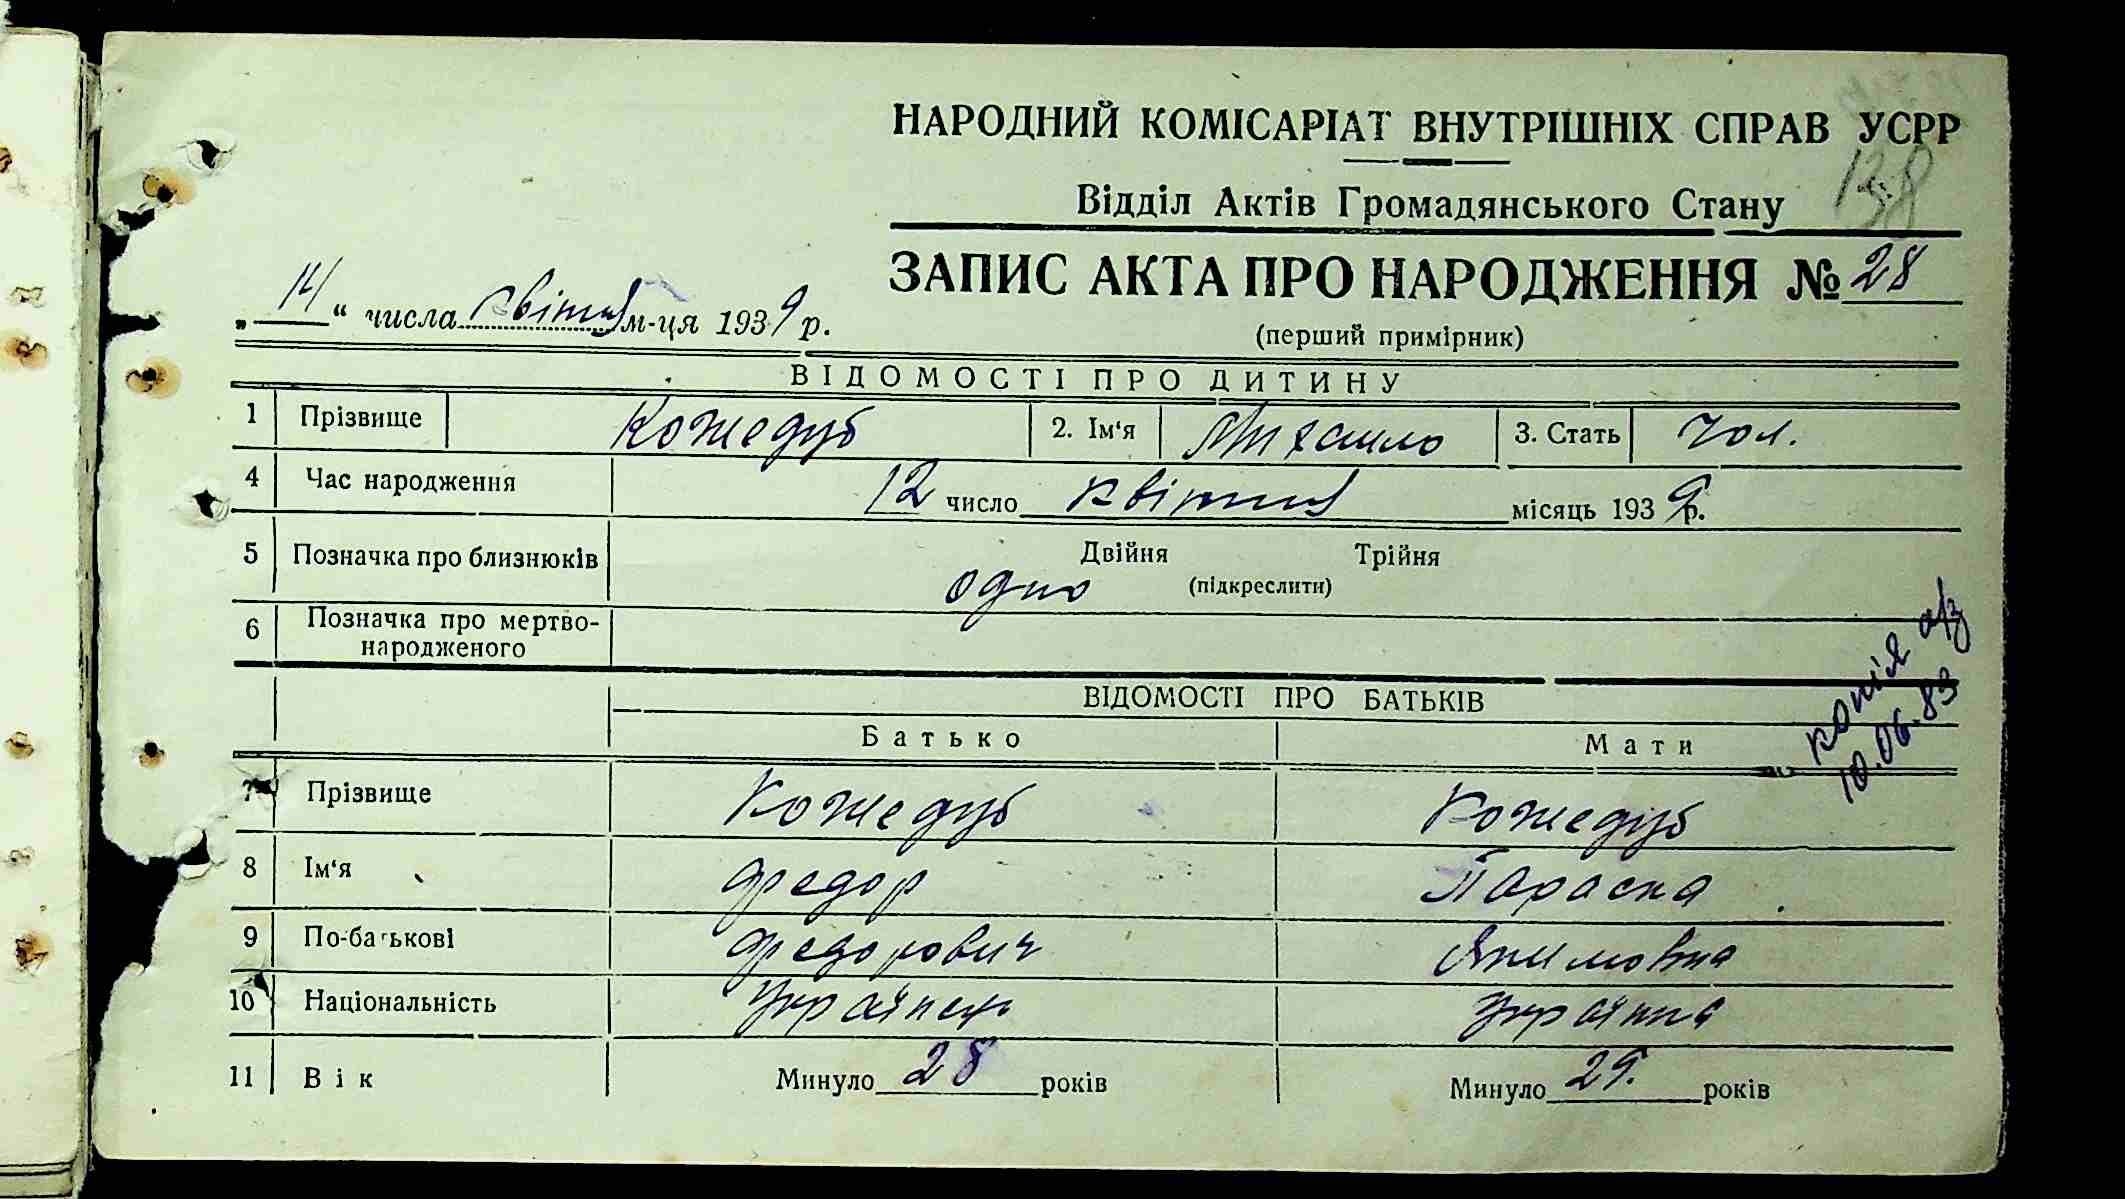 НАРОДНИЙ КОМІСАРІАТ ВНУТРІШНІХ СПРАВ УСРР
138
Відділ Актів Громадянського Стану
ЗАПИС АКТА ПРО НАРОДЖЕННЯ № 28
„14“ числа квітня м-ця 1939 р.
(перший примірник)
ВІДОМОСТІ ПРО ДИТИНУ
1 Прізвище Кожедуб 2. Ім‘я Михайло 3. Стать чол.
4 Час народження 12 число квітня місяць 1939 р.
5 Позначка про близнюків Двійня Трійня
одно (підкреслити)
6 Позначка про мертво-
народженого
ВІДОМОСТІ ПРО БАТЬКІВ
Батько Мати
копія а/з
10.06.83
7 Прізвище Кожедуб Кожедуб
8 Ім‘я Федор Параска
9 По-батькові Федорович Якимовна
10 Національність Українець Українка
11 Вік Минуло 28 років Минуло 29. років